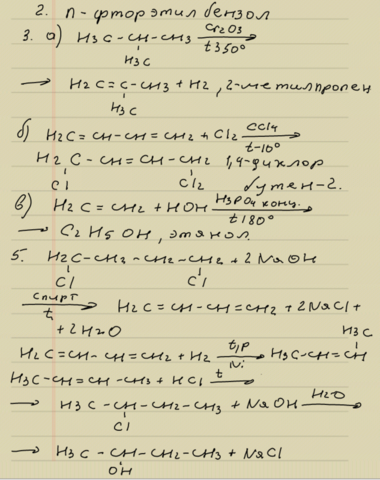 2. п-фторэтилбензол
3. а) H3C-CH-CH3 Cr2O3 t350°
H3C
→ H2C=C-CH3 + H2, 2-метилпропен
H3C
б) H2C=CH-CH=CH2 + Cl2 CCl4 t-10°
H2C-CH=CH-CH2 1,4-дихлор
Cl Cl2 бутен-2.
в) H2C=CH2 + HOH H3PO4 конц. t180°
→ C2H5OH, этанол.
5. H2C-CH2-CH2-CH2 + 2NaOH
Cl Cl
спирт t → H2C=CH-CH=CH2 + 2NaCl +
+ 2H2O
H3C
H2C=CH-CH=CH2 + H2 t,p Ni → H3C-CH=CH
H3C-CH=CH-CH3 + HCl t →
→ H3C-CH-CH2-CH3 + NaOH H2O →
Cl
→ H3C-CH-CH2-CH3 + NaCl
OH